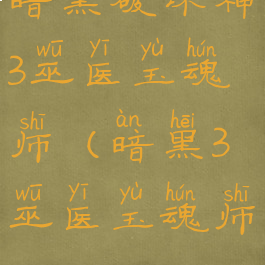 暗黑破坏神
3巫(wū)医(yī)玉(yù)魂(hún)
师(shī)(暗(àn)黑(hēi)3
巫(wū)医(yī)玉(yù)魂(hún)师(shī)